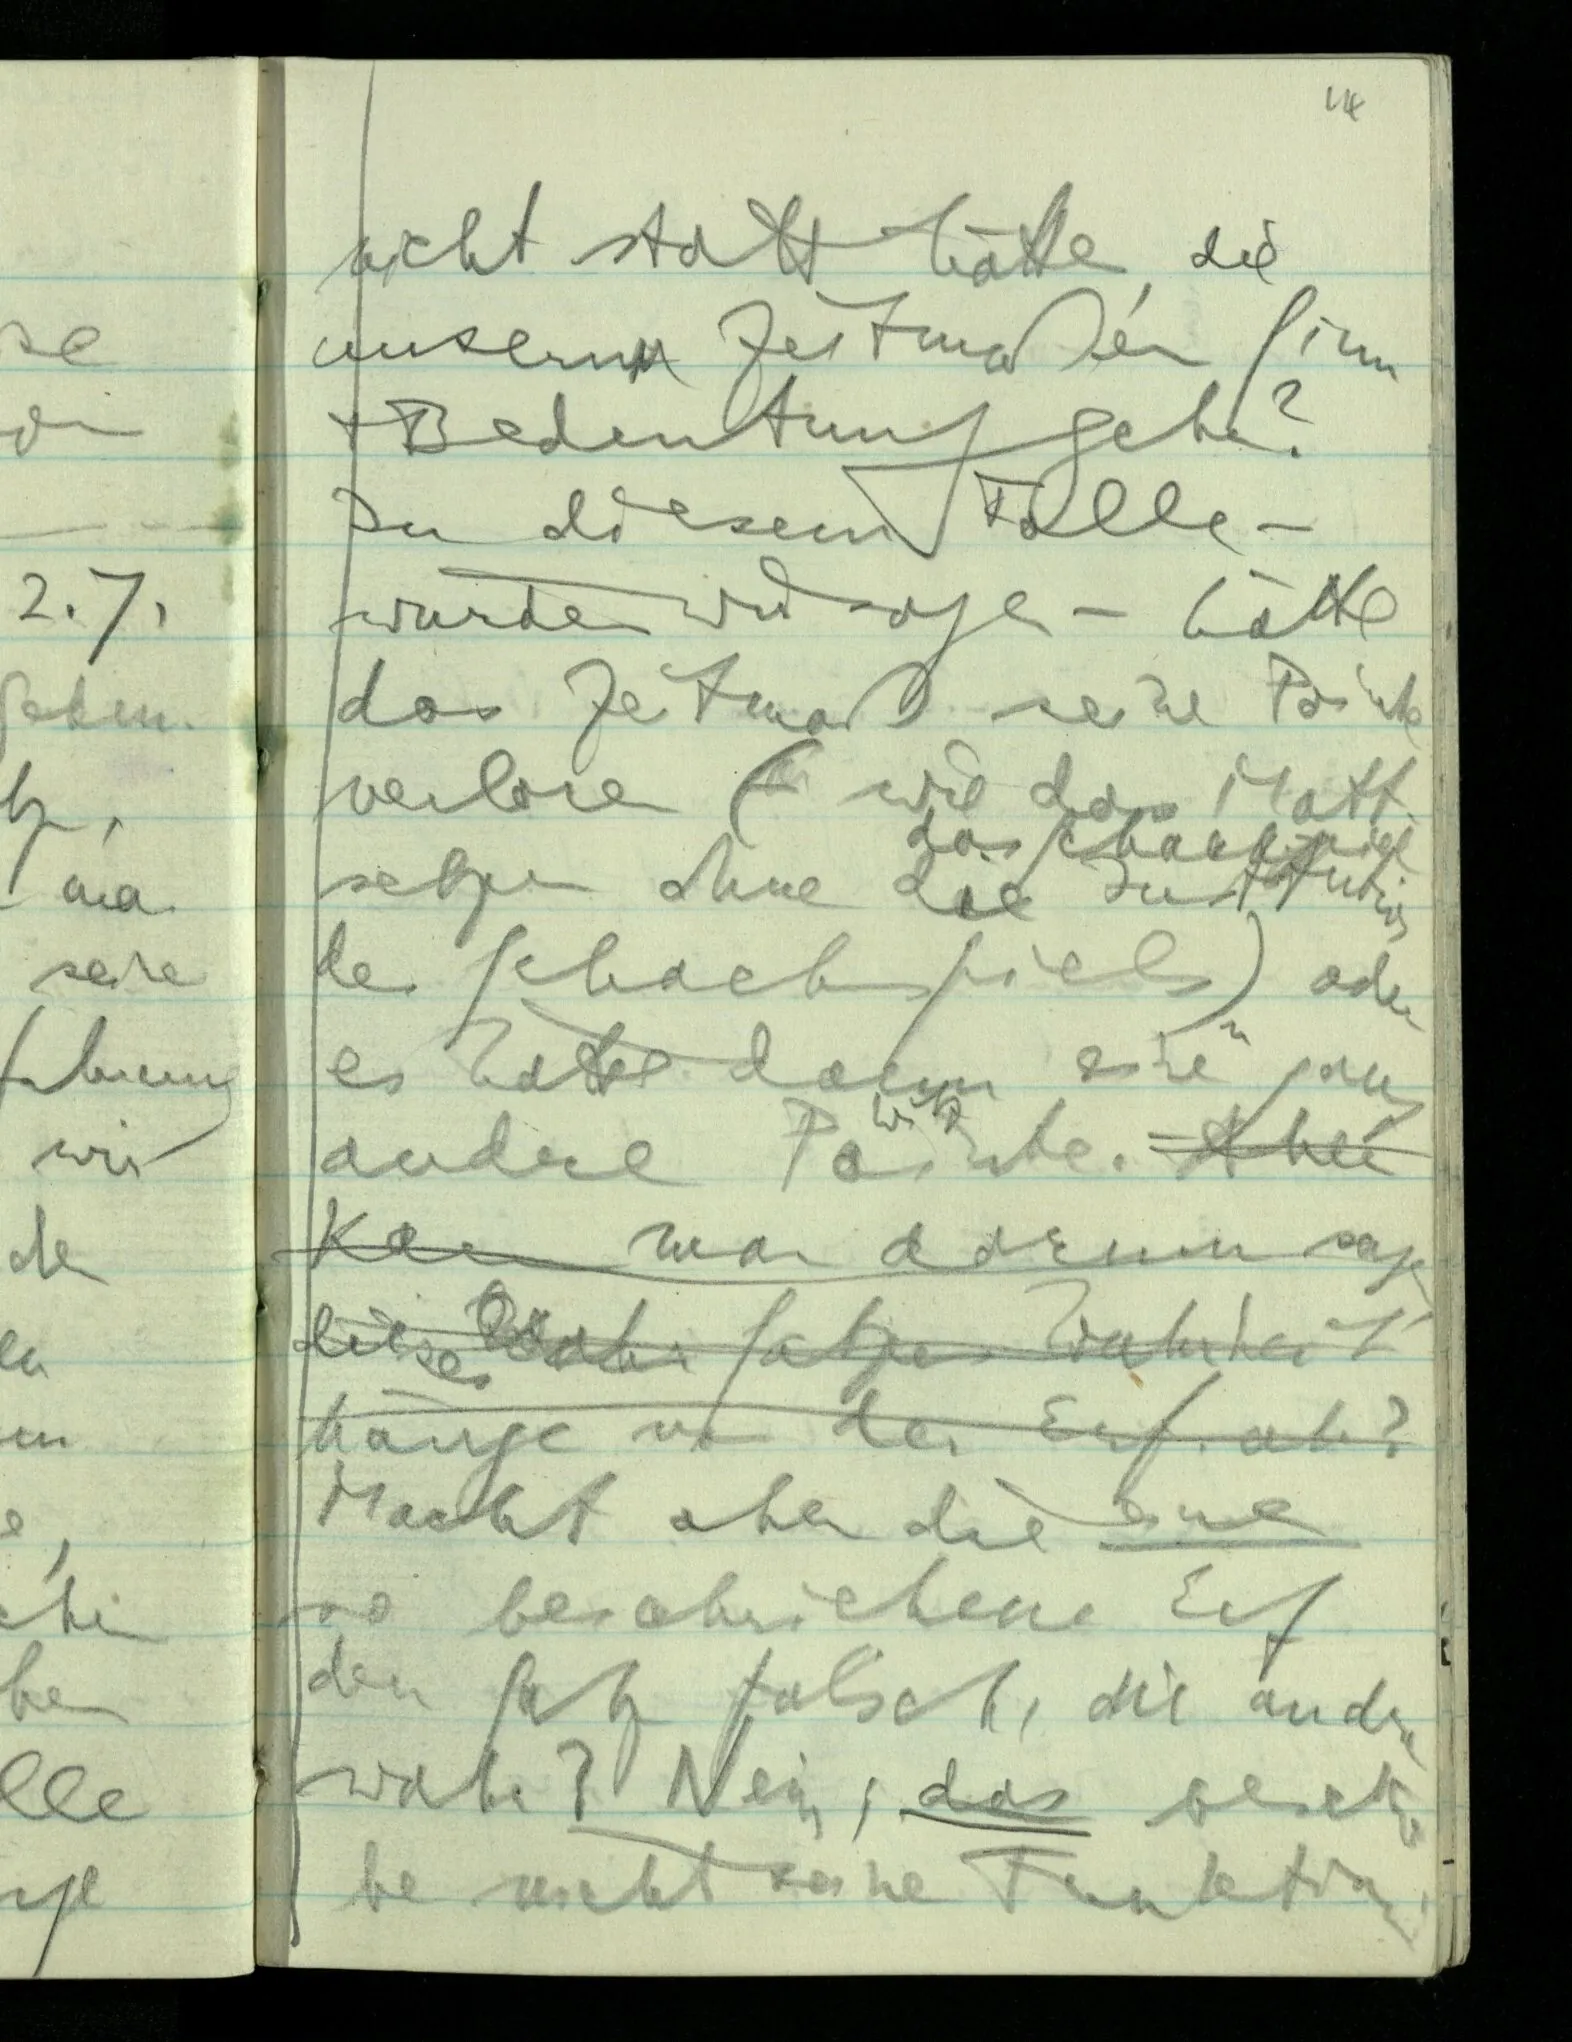 114
nicht statt hätte, die
unsern Zeitmaßen Sinn
+ Bedeutung gebe?
In diesem Falle –
würden wir sagen – hätte
das Zeitmaß seine Pointe
verloren (wie das Matt
setzen ohne die Institution
das Schachspiel
des Schachspiels) oder
es hätte dann eine n ganz
andere Pointe. Aber
Witz
Kann man darum sagen
dieses Satzes Wahrheit
hänge von der Erf. ab?
Macht aber die eine
so beschriebene Erf
den Satz falsch, die andere
wahr? Nein; das
be nicht seine Funktion.
se
2.7.
geben.
seine
wir
der
ben
lle